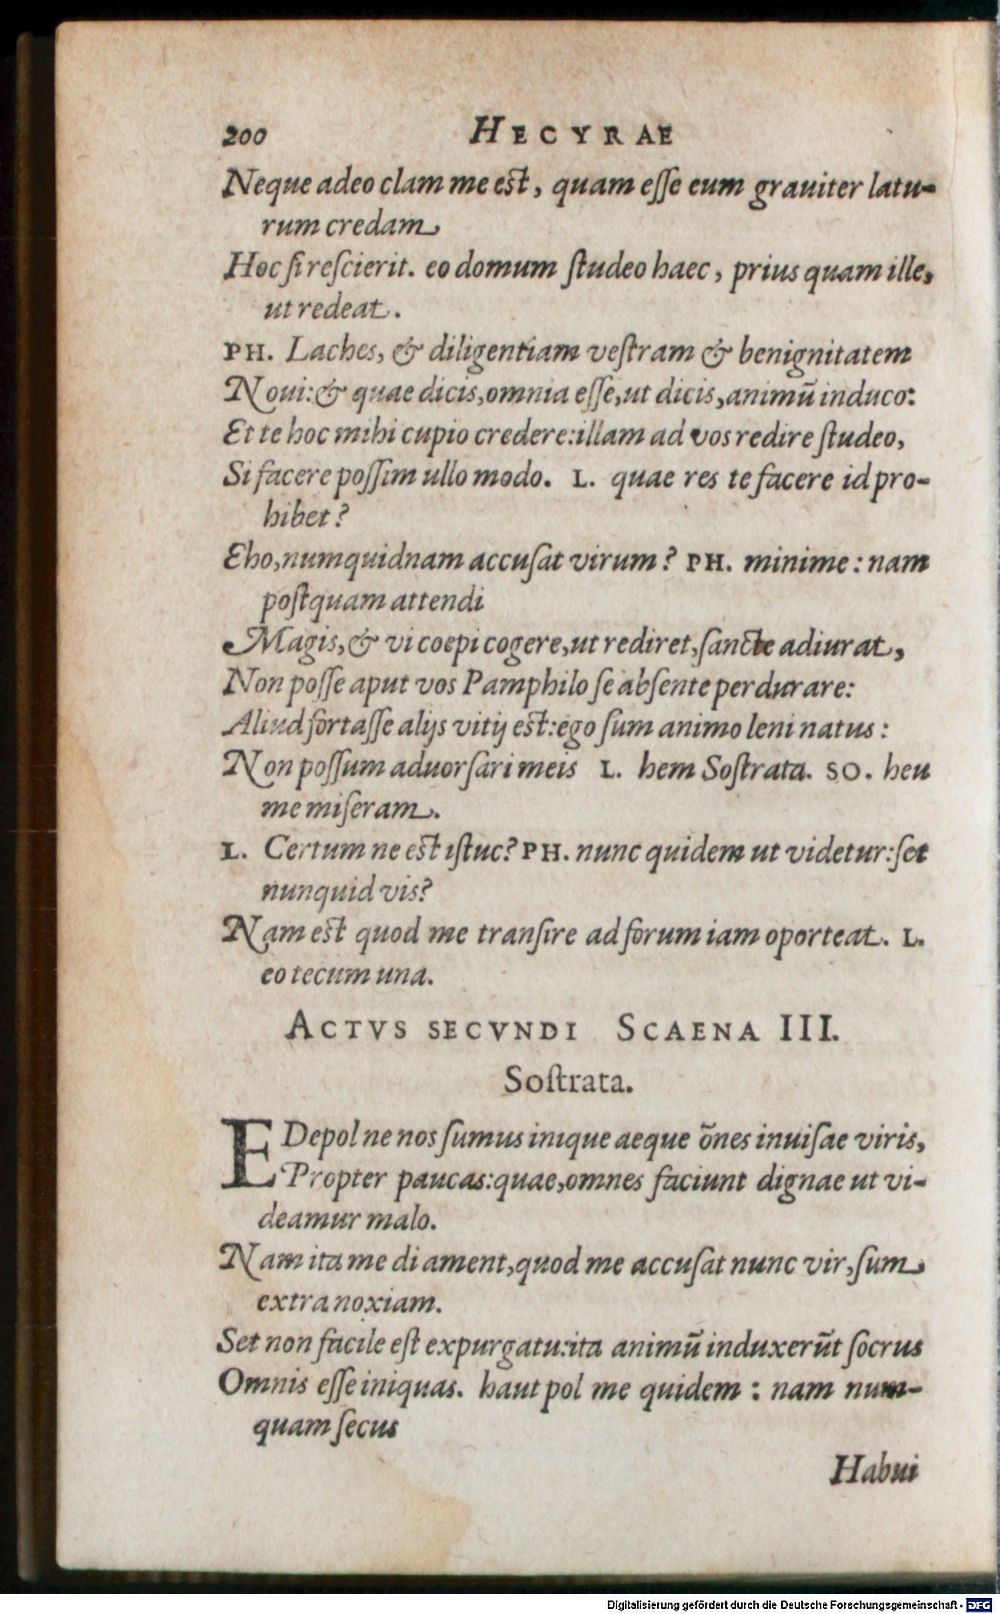 200 HECYRAE
Neque adeo clam me est, quam esse eum grauiter latu-
rum credam
Hoc si rescierit. eo domum studeo haec, prius quam ille,
ut redeat.
PH. Laches, & diligentiam vestram & benignitatem
Noui: & quae dicis, omnia esse, ut dicis, animū induco:
Et te hoc mihi cupio credere: illam ad vos redire studeo,
Si facere possim ullo modo. L. quae res te facere id pro-
hibet?
Eho, numquidnam accusat virum? PH. minime: nam
postquam attendi
Magis, & vi coepi cogere, ut rediret, sancte adiurat,
Non posse aput vos Pamphilo se absente perdurare:
Aliud fortasse alijs vitij est: ego sum animo leni natus:
Non possum aduorsari meis L. hem Sostrata. SO. heu
me miseram.
L. Certum ne est istuc? PH. nunc quidem ut videtur: set
nunquid vis?
Nam est quod me transire ad forum iam oporteat. L.
eo tecum una.
ACTVS SECVNDI SCAENA III.
Sostrata.
EDepol ne nos sumus inique aeque ōnes inuisae viris,
Propter paucas: quae, omnes faciunt dignae ut vi-
deamur malo.
Nam ita me di ament, quod me accusat nunc vir, sum
extra noxiam.
Set non facile est expurgatu: ita animū induxerūt socrus
Omnis esse iniquas. haut pol me quidem: nam num-
quam secus
Habui
Digitalisierung gefördert durch die Deutsche Forschungsgemeinschaft - DFG